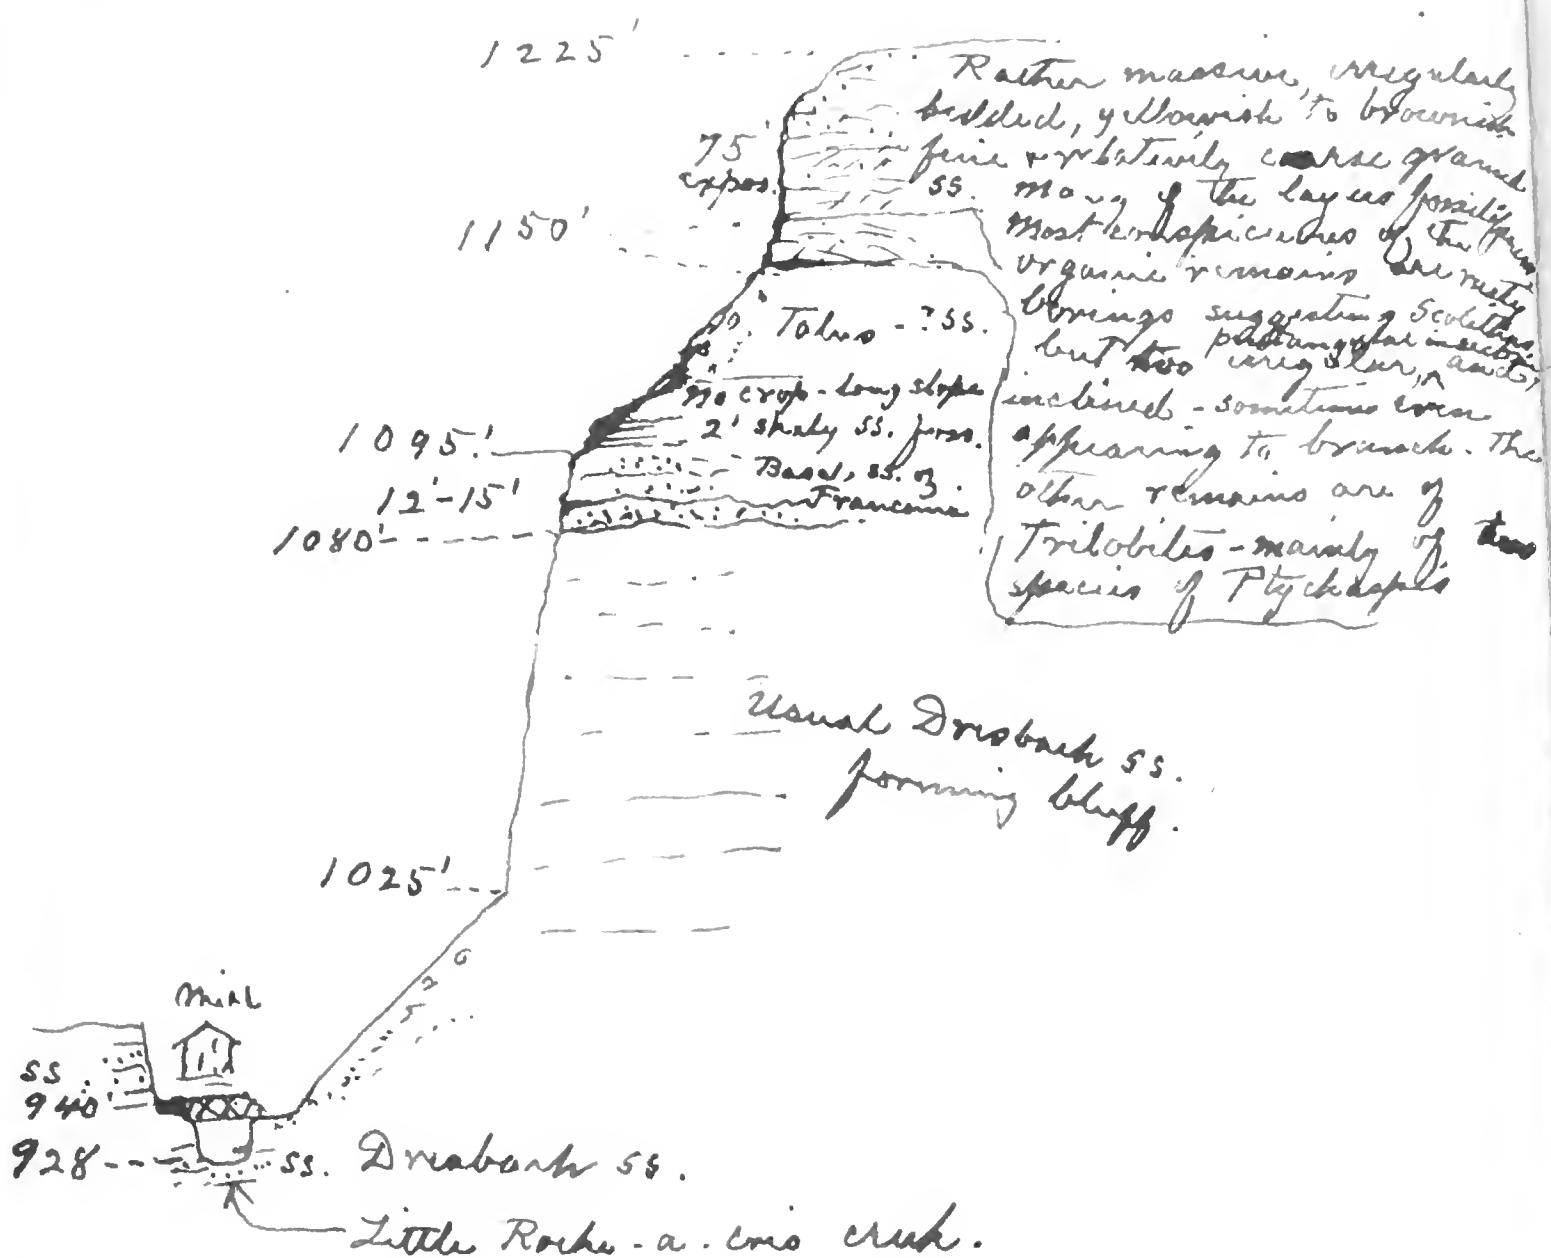 1225'
Rather massive, irregularly
bedded, yellowish to brownish
fine & relatively coarse grained
ss. Many of the layers fossiliferous
Most conspicuous of the
organic remains are rusty
borings suggesting Scolithus
but too irregular, and
inclined - sometimes even
appearing to branch. The
other remains are of
Trilobites - mainly of two
species of Ptychaspis
75'
expos.
1150'
Talus - ? ss.
No crop - long slope
2' shaly ss. foss.
1095'
Basal, ss. of
Franconia
12'-15'
1080'
Usual Dresbach ss.
forming bluff.
1025'
Mill
ss.
940'
928
ss. Dresbach ss.
Little Roche-a-cris creek.